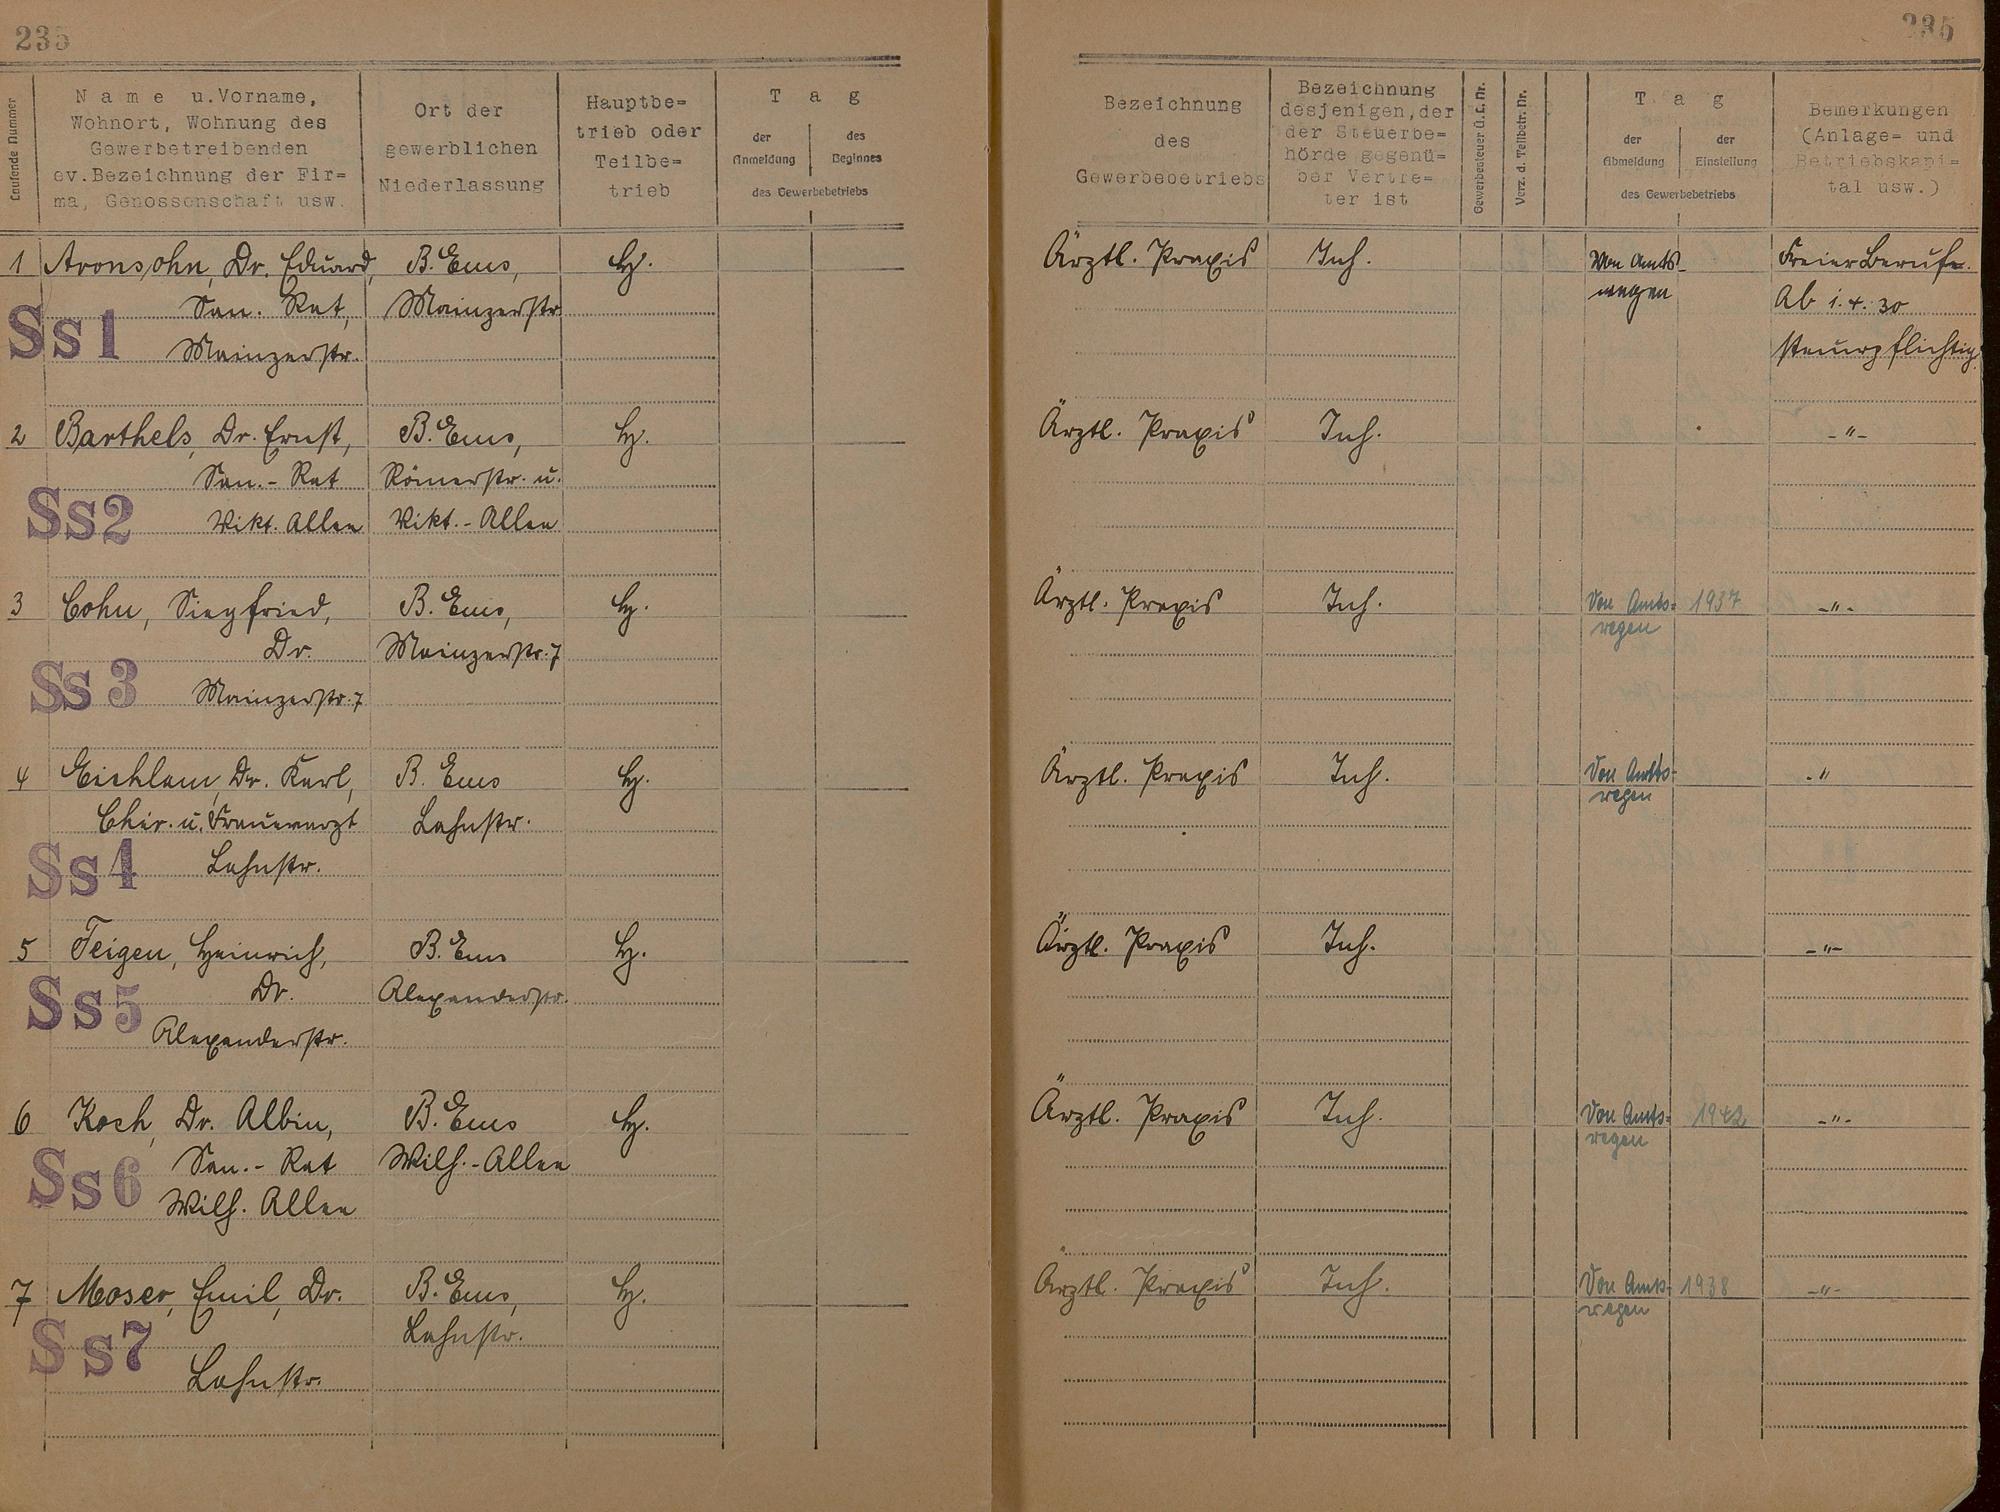 235
235
Laufende Nummer
Name u. Vorname,
Wohnort, Wohnung des
Gewerbetreibenden
ev. Bezeichnung der Fir=
ma, Genossenschaft usw.
Ort der
gewerblichen
Niederlassung
Hauptbe=
trieb oder
Teilbe=
trieb
Tag
der
Anmeldung
des
Beginnes
des Gewerbebetriebs
Bezeichnung
des
Gewerbebetriebs
Bezeichnung
desjenigen, der
der Steuerbe=
hörde gegenü=
ber Vertre=
ter ist
Gewerbesteuer Ü. L. Nr.
Verz. d. Teilbetr. Nr.
Tag
der
Abmeldung
der
Einstellung
des Gewerbebetriebs
Bemerkungen
(Anlage= und
Betriebskapi=
tal usw.)
1 Aronsohn, Dr. Eduard, B. Ems, H. Ärztl. Praxis Inh. Von Amts- Freier Beruf.
San. Rat, Mainzerstr. wegen Ab 1.4.30
Ss 1 Mainzerstr. steuerpflichtig.
2 Barthels, Dr. Ernst, B. Ems, H. Ärztl. Praxis Inh. -"-
San.-Rat Römerstr. u.
Ss 2 Vikt. Allee Vikt.-Allee
3 Cohn, Siegfried, B. Ems, H. Ärztl. Praxis Inh. Von Amts- 1937 -"-
Dr. Mainzerstr. 7 wegen
Ss 3 Mainzerstr. 7
4 Eichlam, Dr. Karl, B. Ems H. Ärztl. Praxis Inh. Von Amts- -"
Chir. u. Frauenarzt Lahnstr. wegen
Ss 4 Lahnstr.
5 Feigen, Heinrich, B. Ems H. Ärztl. Praxis Inh. -"-
Dr. Alexanderstr.
Ss 5 Alexanderstr.
6 Koch, Dr. Albin, B. Ems H. Ärztl. Praxis Inh. Von Amts- 1942 -"-
San.-Rat Wilh.-Allee wegen
Ss 6 Wilh. Allee
7 Moser, Emil, Dr. B. Ems, H. Ärztl. Praxis Inh. Von Amts- 1938 -"-
Lahnstr. wegen
Ss 7 Lahnstr.